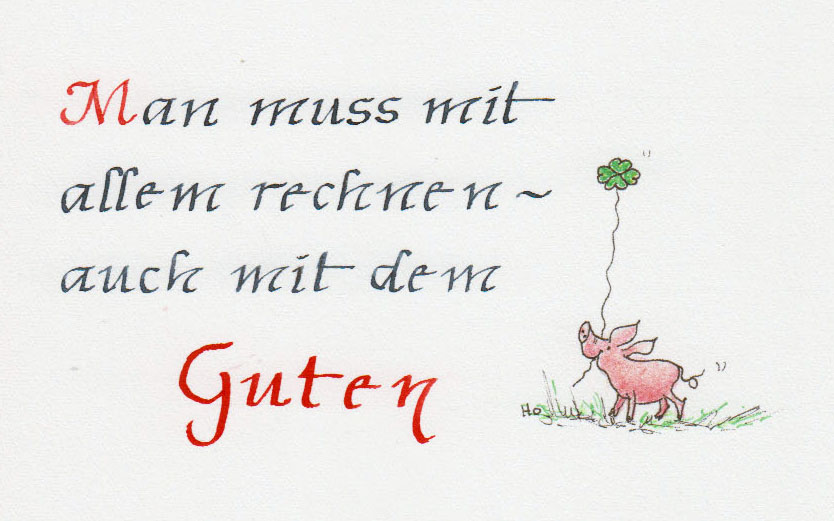 Man muss mit
allem rechnen ~
auch mit dem
Guten
Ho